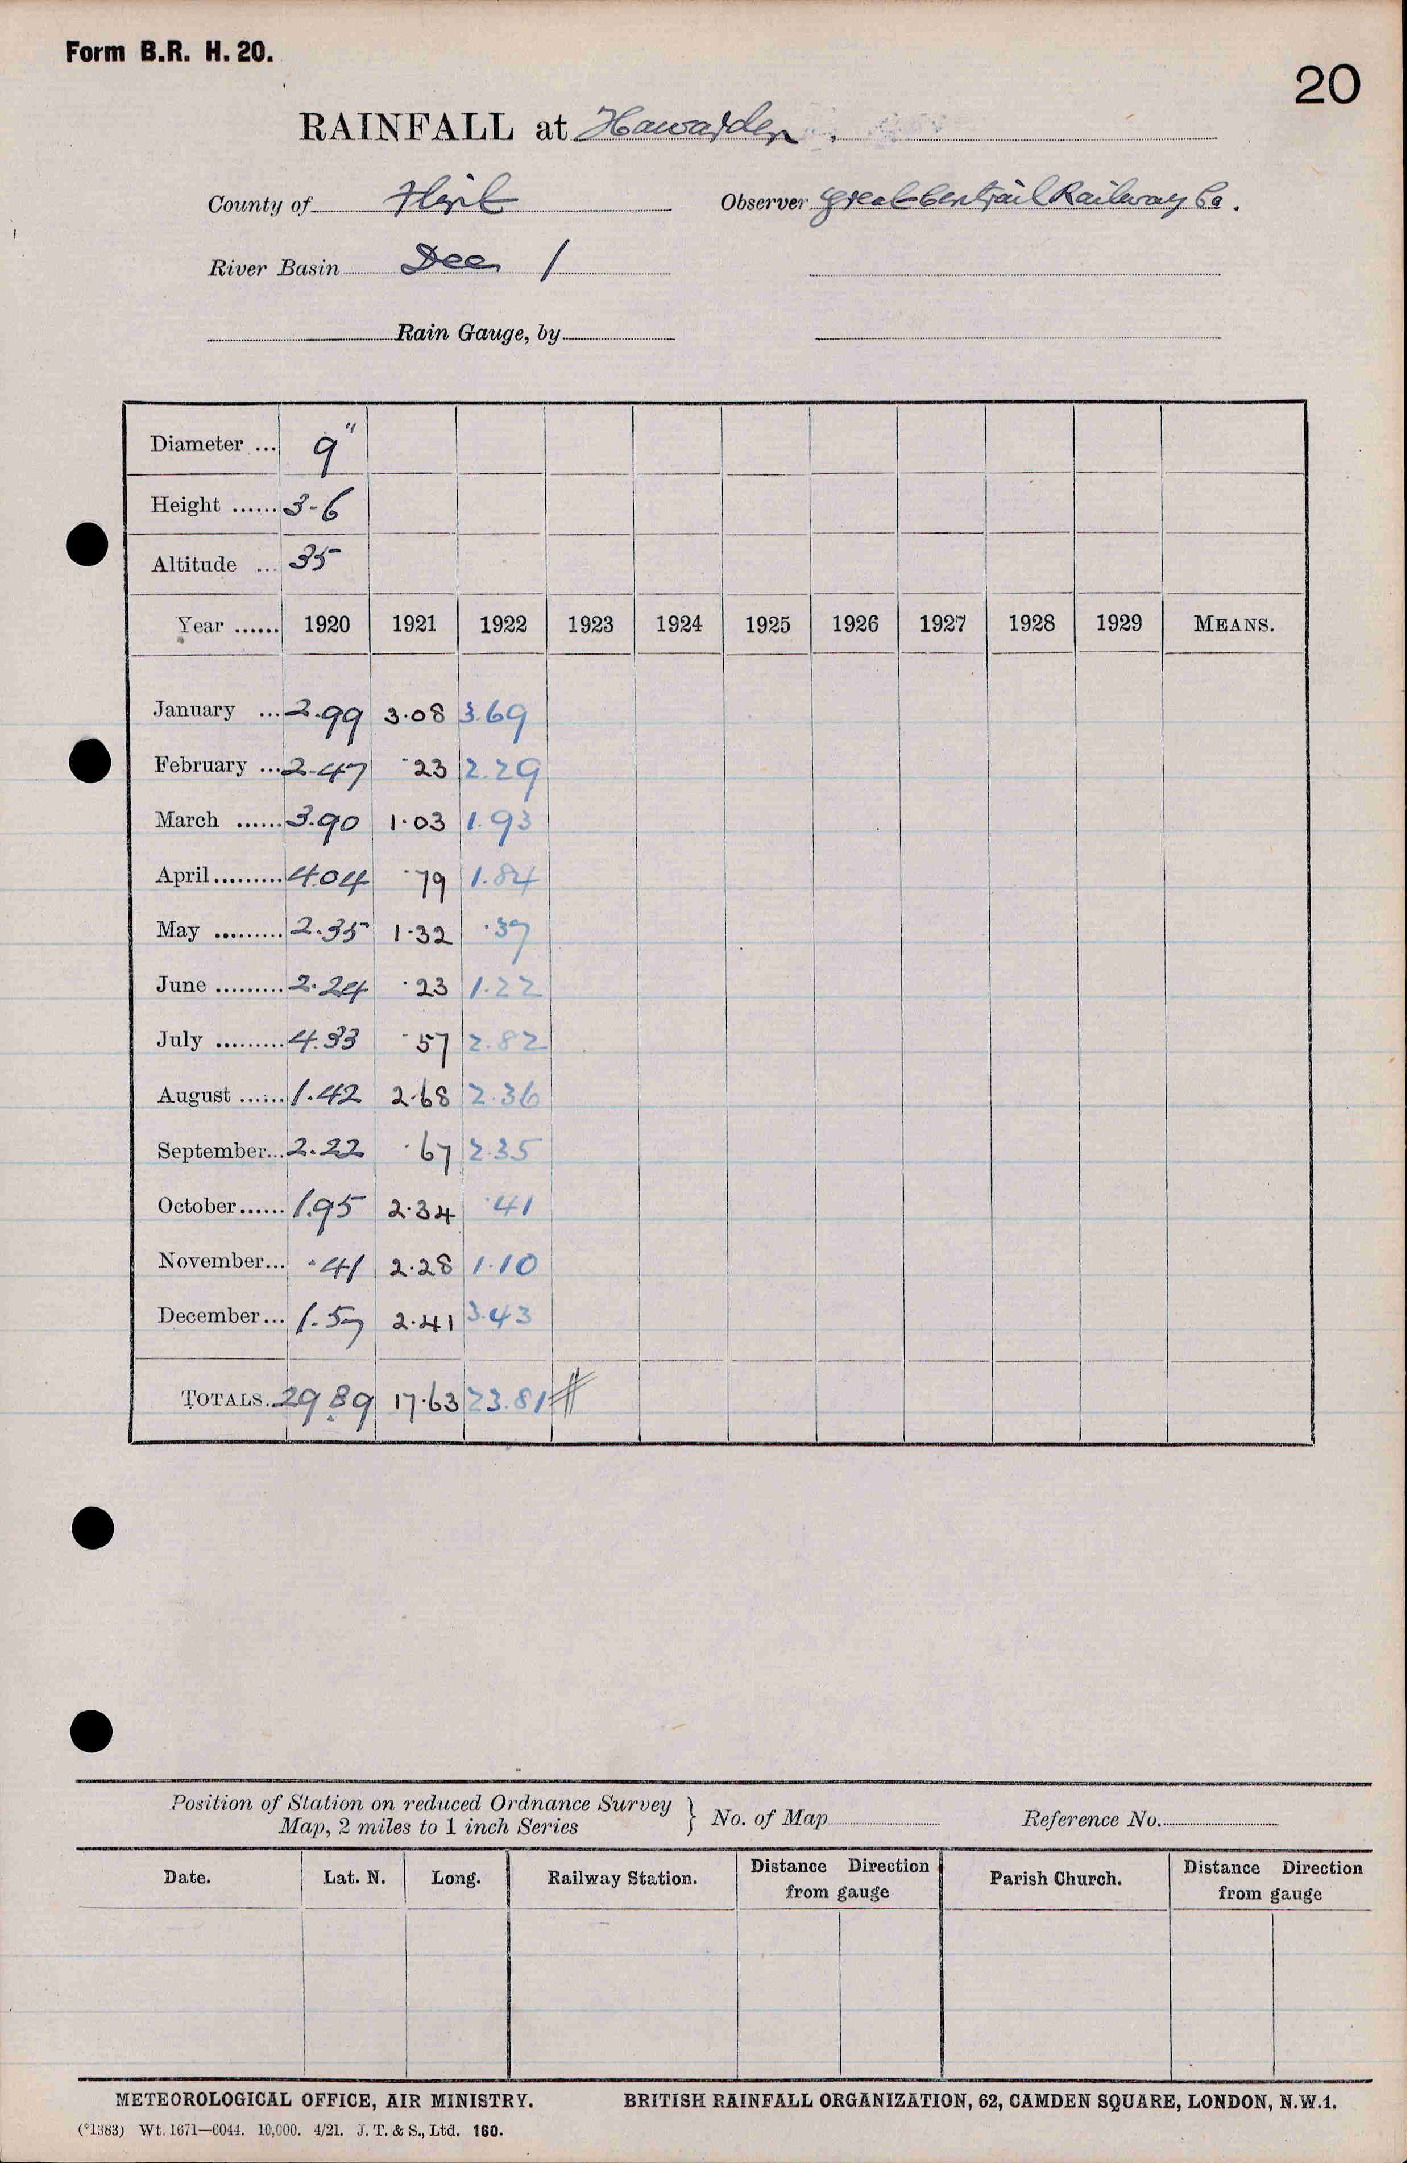 Form B.R. H. 20.
20
RAINFALL at Hawarden
County of Flint Observer Great Central Railway Co.
River Basin Dee /
Rain Gauge, by
Diameter ... 9"
Height ...... 3-6
Altitude ... 35
Year ...... 1920 1921 1922 1923 1924 1925 1926 1927 1928 1929 MEANS.
January ... 2.99 3.08 3.69
February ... 2.47 .23 2.29
March ...... 3.90 1.03 1.93
April......... 4.04 .79 1.84
May ......... 2.35 1.32 .37
June ......... 2.24 .23 1.22
July ......... 4.33 .57 2.82
August ...... 1.42 2.68 2.36
September... 2.22 .67 2.35
October...... 1.95 2.34 .41
November... .41 2.28 1.10
December... 1.57 2.41 3.43
TOTALS. 29.89 17.63 23.81 #
Position of Station on reduced Ordnance Survey
Map, 2 miles to 1 inch Series } No. of Map Reference No.
Date. Lat. N. Long. Railway Station. Distance Direction from gauge Parish Church. Distance Direction from gauge
METEOROLOGICAL OFFICE, AIR MINISTRY. BRITISH RAINFALL ORGANIZATION, 62, CAMDEN SQUARE, LONDON, N.W.1.
(*1383) Wt. 1671—0044. 10,000. 4/21. J. T. & S., Ltd. 160.